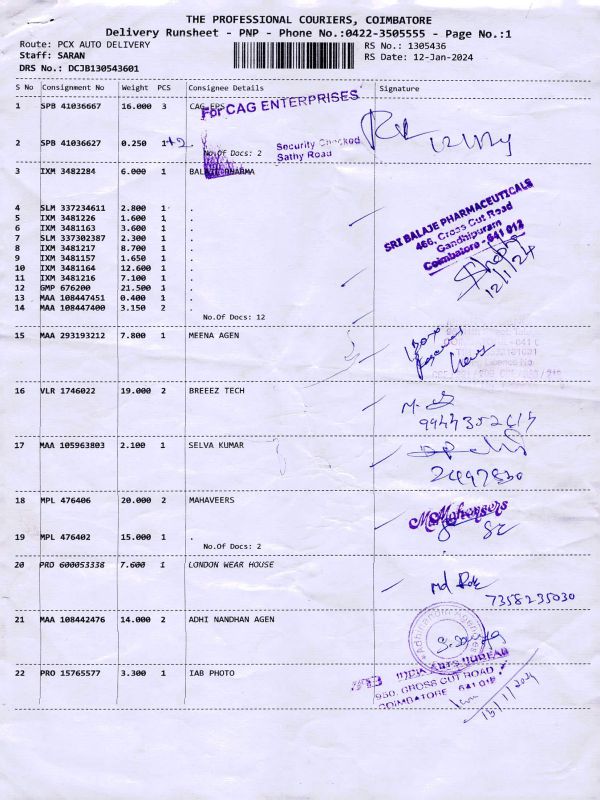 THE PROFESSIONAL COURIERS, COIMBATORE
Delivery Runsheet - PNP - Phone No.:0422-3505555 - Page No.:1
Route: PCX AUTO DELIVERY RS No.: 1305436
Staff: SARAN RS Date: 12-Jan-2024
DRS No.: DCJB130543601
S No Consignment No Weight PCS Consignee Details Signature
1 SPB 41036667 16.000 3 CAG EPS
For CAG ENTERPRISES
2 SPB 41036627 0.250 1 +2
No.Of Docs: 2
Security Checked
Sathy Road
3 IXM 3482284 6.000 1 BALAJI PHARMA
4 SLM 337234611 2.800 1 .
5 IXM 3481226 1.600 1 .
6 IXM 3481163 3.600 1 .
7 SLM 337302387 2.300 1 .
8 IXM 3481217 8.700 1 .
9 IXM 3481157 1.650 1 .
10 IXM 3481164 12.600 1 .
11 IXM 3481216 7.100 1 .
12 GMP 676200 21.500 1 .
13 MAA 108447451 0.400 1 .
14 MAA 108447400 3.150 2 .
No.Of Docs: 12
SRI BALAJE PHARMACEUTICALS
466, Cross Cut Road
Gandhipuram
Coimbatore - 641 012
12/1/24
15 MAA 293193212 7.800 1 MEENA AGEN
16 VLR 1746022 19.000 2 BREEEZ TECH
17 MAA 105963803 2.100 1 SELVA KUMAR
18 MPL 476406 20.000 2 MAHAVEERS
19 MPL 476402 15.000 1 .
No.Of Docs: 2
20 PRO 600053338 7.600 1 LONDON WEAR HOUSE
7358235030
21 MAA 108442476 14.000 2 ADHI NANDHAN AGEN
22 PRO 15765577 3.300 1 IAB PHOTO
INDIA ARTS BUREAU
950, CROSS CUT ROAD
COIMBATORE 641 012